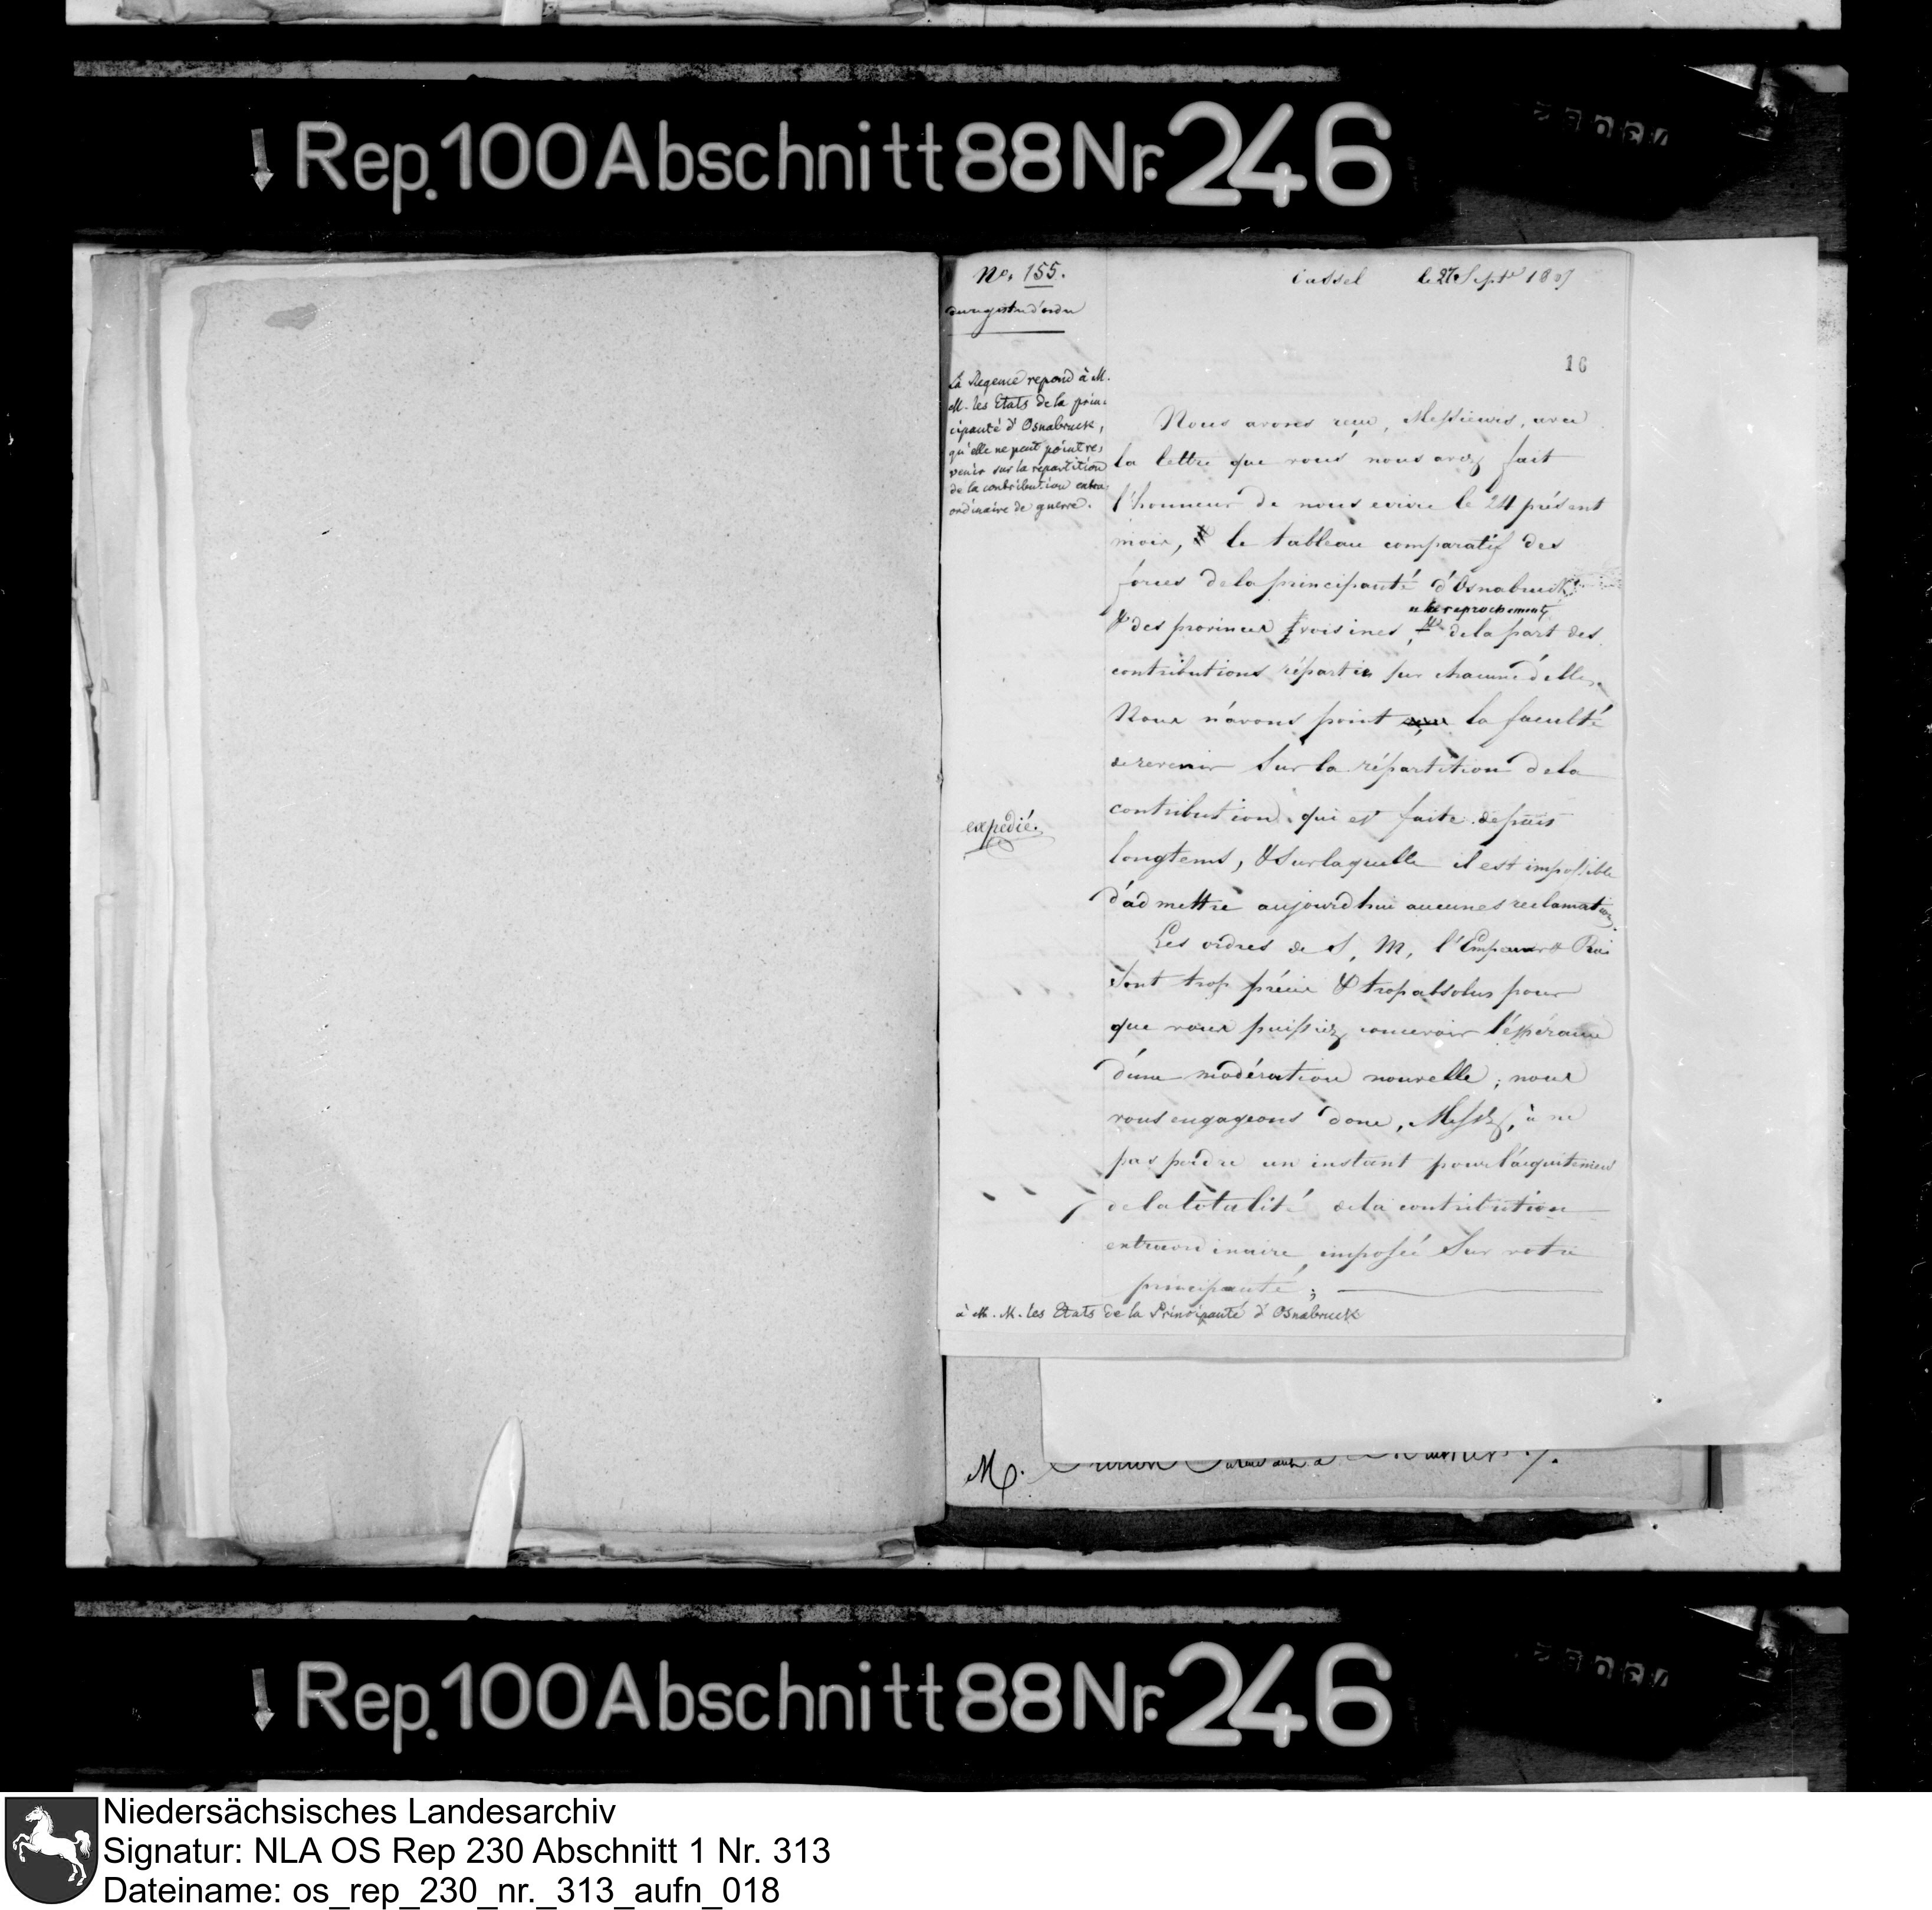 Rep. 100 Abschnitt 88 Nr. 246
No. 155.
du registre d'ordre
Cassel le 27 Septre 1807
16
La Regence repond à M.
M. les Etats de la prin-
cipauté d'Osnabruck,
qu'elle ne peut point re-
venir sur la repartition
de la contribution extra
ordinaire de guerre.
expedié.
Nous avons reçu, Messieurs, avec
la lettre que vous nous avez fait
l'honneur de nous ecrire le 24 présent
mois, le tableau comparatif des
forces de la principauté d'Osnabruck
& des provinces voisines, de la part des
contributions réparties sur chacune d'elles.
Nous n'avons point la faculté
de revenir sur la répartition de la
contribution qui est faite depuis
longtems, & sur laquelle il est impossible
d'admettre aujourd'hui aucunes reclamations.
Les ordres de S. M. l'Empereur & Roi
sont trop précis & trop absolus pour
que vous puissiez concevoir l'éspérance
d'une modération nouvelle; nous
vous engageons donc, Messrs, à ne
pas perdre un instant pour l'acquitement
de la totalité de la contribution
extraordinaire imposée sur votre
principauté;
à M. M. les Etats de la Principauté d'Osnabruck
M.
Rep. 100 Abschnitt 88 Nr. 246
Niedersächsisches Landesarchiv
Signatur: NLA OS Rep 230 Abschnitt 1 Nr. 313
Dateiname: os_rep_230_nr._313_aufn_018